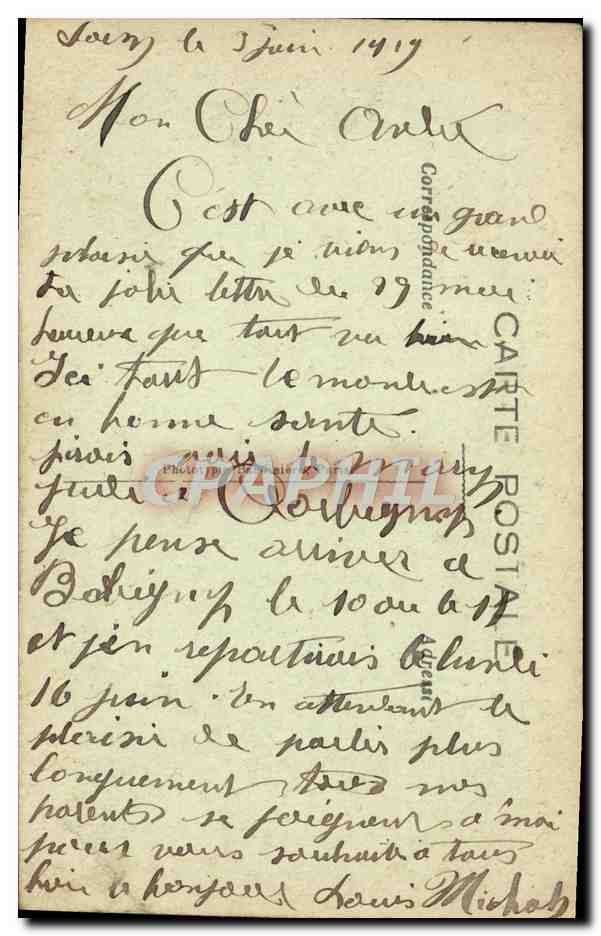 le 3 juin 1919
Mon Cher André
C'est avec un grand
plaisir que je viens de recevoir
ta jolie lettre du 29 mai
heureux que tout va bien
Ici tout le monde est
en bonne santé.
à Corbigny
Je pense arriver a
le 10 ou le 11
et j'en repartirais le lundi
16 juin. En attendant le
plaisir de parler plus
longuement nos
parents se joignent a moi
pour vous souhaiter a tous
bonjour Louis
Correspondance
CARTE POSTALE
Adresse
CPAPHIL